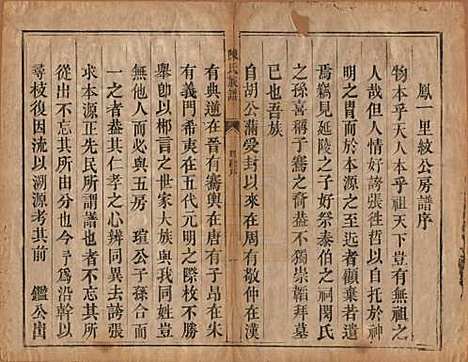 鳳一里紋公房譜序
物本乎天人本乎祖天下豈有無祖之
人哉人恆情於好誇張徃徃以自托於神
明之胄而於本源之至近者或顧棄若遺
焉竊見延陵之子好祭泰伯之祠閔氏
之孫喜稱子騫之墓不獨崇韜拜墓
已也吾族
自胡公滿受封以來在周有敬仲在漢
有典道在晉有騫輿在唐有子昂在朱
有義門希夷在五代元明之際枝不勝
舉卽以郴言之世家大族與我同姓豈
無他人而與五房 瑄公子孫合而
一之者葢其仁孝之心辨同異去誇張
求本源正先民所謂譜也者沿流泝源
從出不去 今予爲沿幹以
尋枝復因流以溯源考其前 鑑公由
陳氏族譜